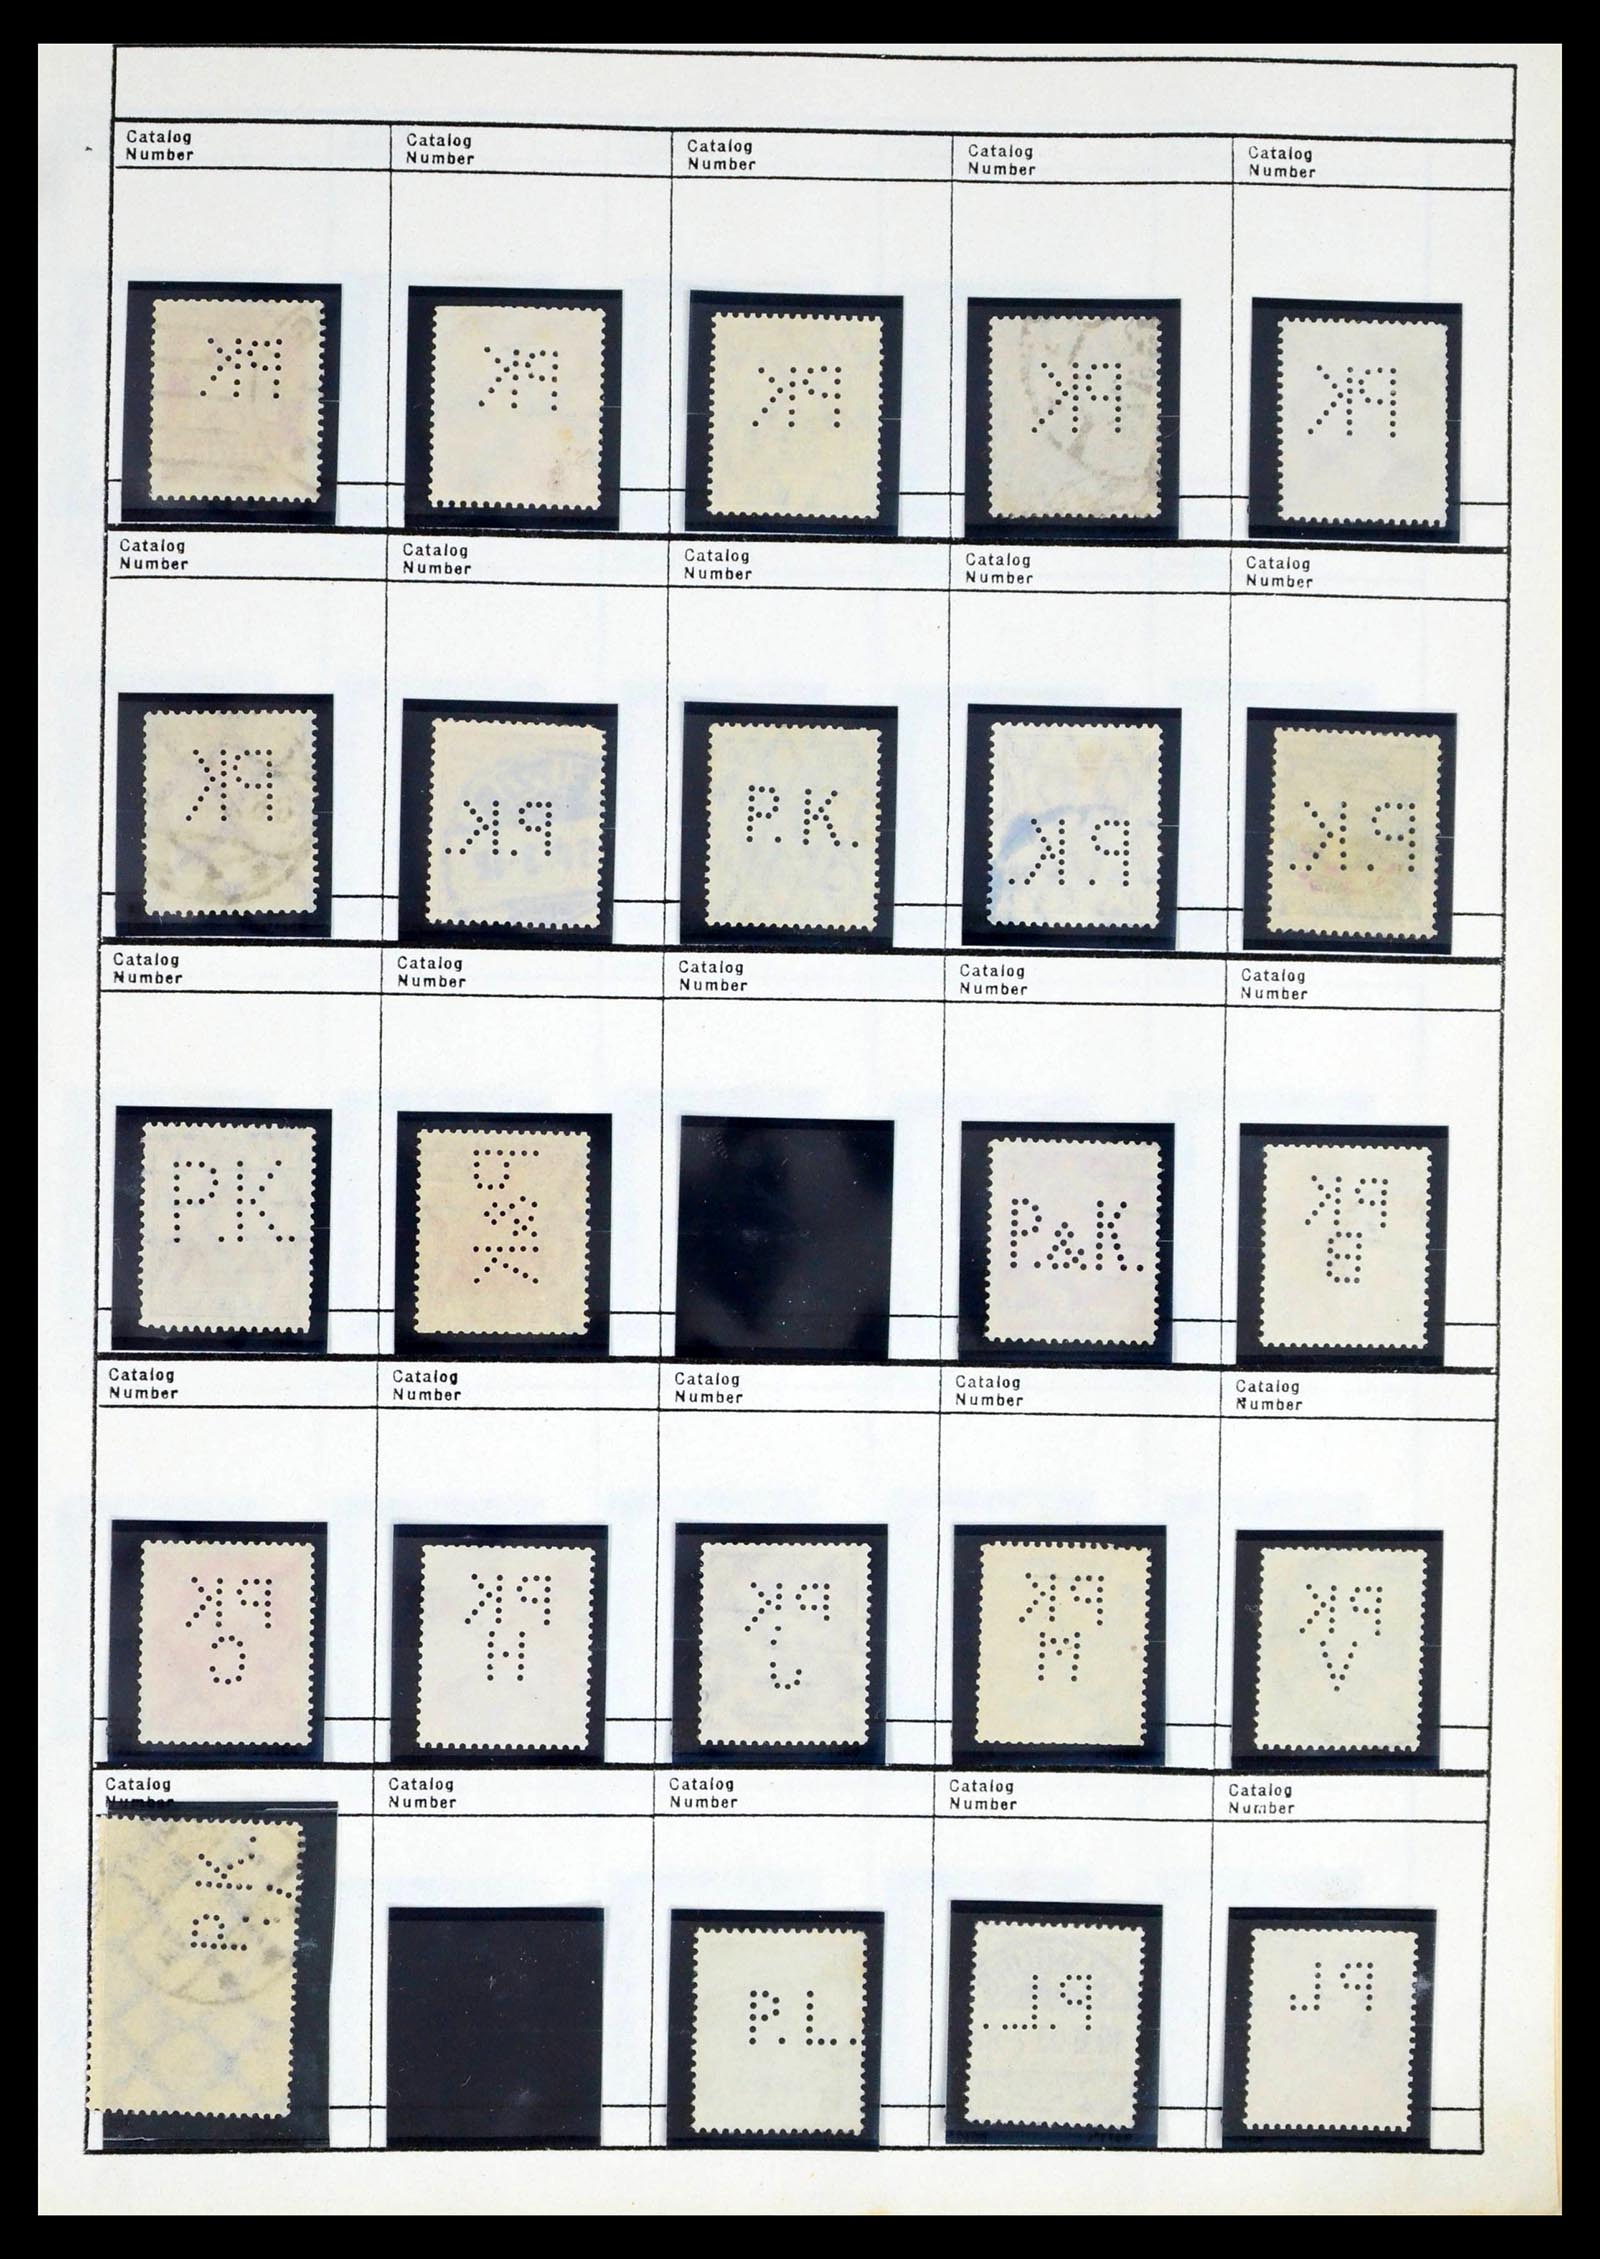 Catalog Number
Catalog Number
Catalog Number
Catalog Number
Catalog Number
PK
PK
PK
PK
PK
Catalog Number
Catalog Number
Catalog Number
Catalog Number
Catalog Number
PK
P.K.
P.K.
P.K.
P.K.
Catalog Number
Catalog Number
Catalog Number
Catalog Number
Catalog Number
P.K.
P&K
P&K.
PK
B
Catalog Number
Catalog Number
Catalog Number
Catalog Number
Catalog Number
PK
C
PK
H
PK
L
PK
M
PK
V
Catalog Number
Catalog Number
Catalog Number
Catalog Number
Catalog Number
P.K.
P.L.
P.L.
PL